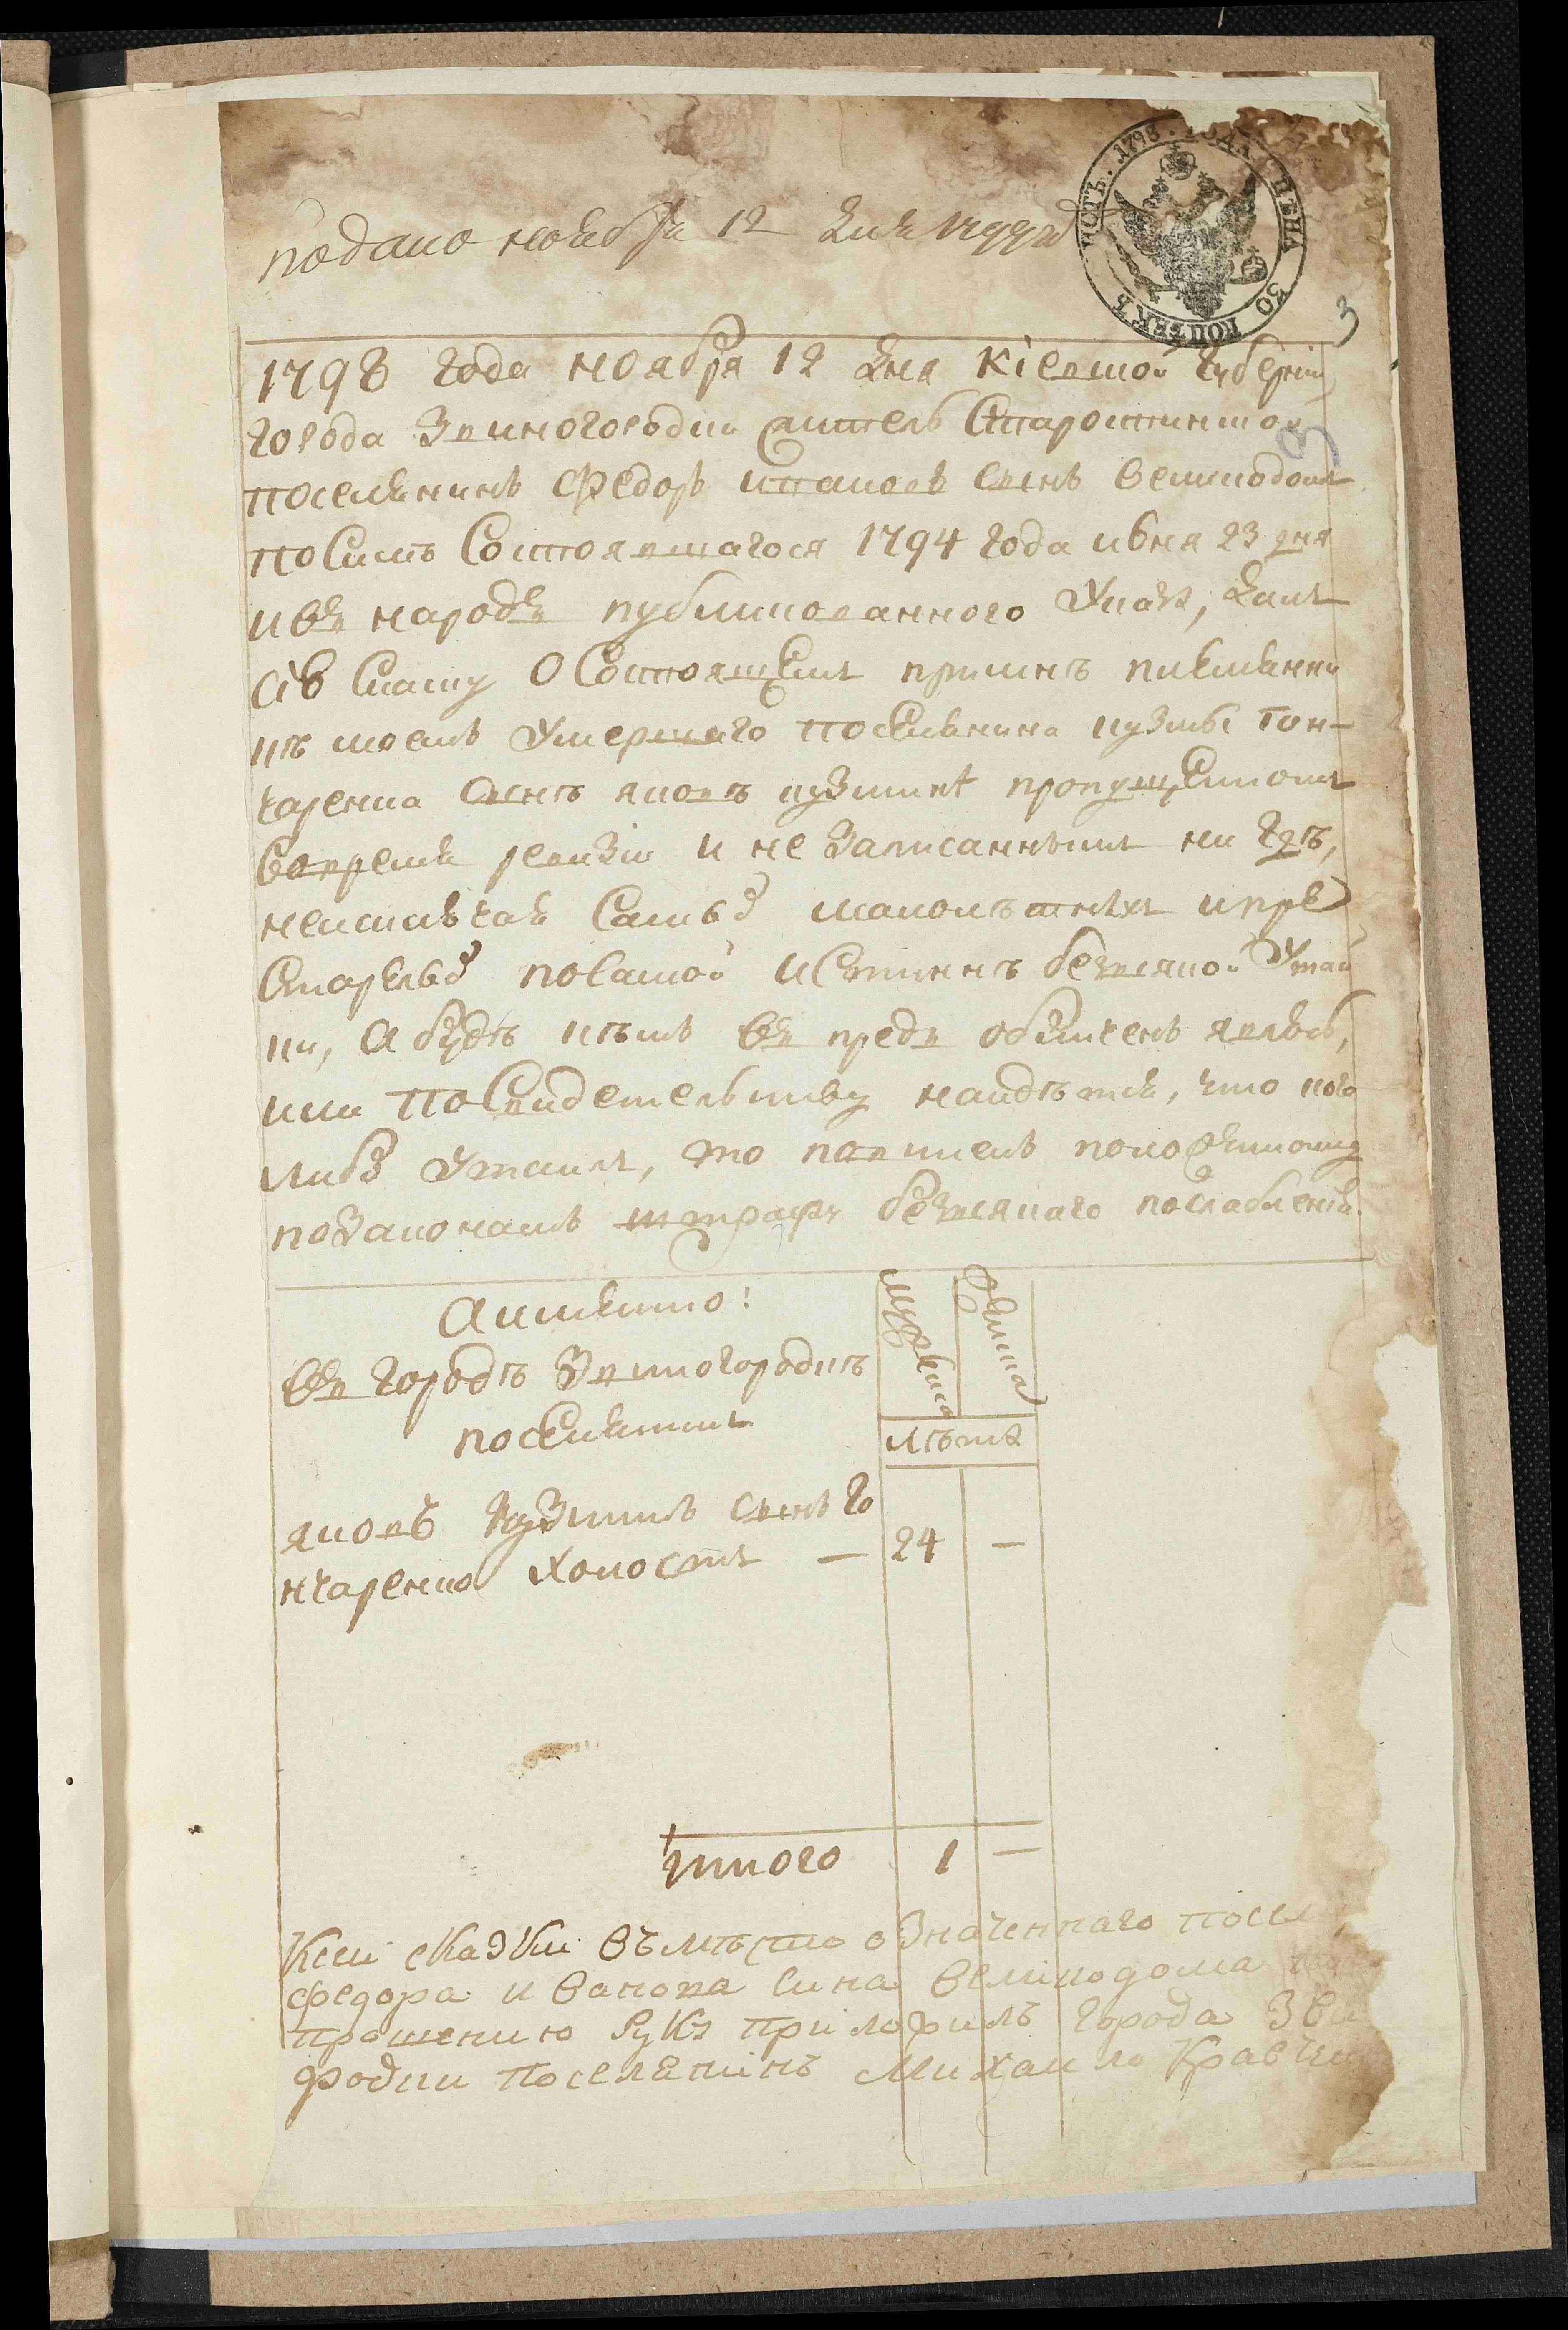 подано ноября 12 дня
ИСТЪ. 1798. ГОДА ЦЕНА 30 КОПѢЕКЪ
3
1798 года ноября 12 дня Кіевской губерніи
города Звиногородки житель Старостинской
поселянинъ Федоръ Ивановъ сынъ Великодомъ
по силѣ состоявшагося 1794 года июня 23 дня
и въ народъ публикованного Указа, далъ
сію скаску о состоящемъ при мнѣ племянни
кѣ моемъ умершаго поселянина Кузмы Гон-
чаренка сынъ Яковъ Кузминъ пропущенномъ
во время ревизіи и не записаннымъ ни гдѣ,
не выключая самыхъ малолѣтныхъ и пре
старелыхъ по самой истиннѣ безъ всякой утай
ки, а будѣ кѣмъ въ предь обличенъ явлюсь,
или по свидетельству найдѣтся, что кого
либо утаилъ, то повиненъ положенному
по законамъ штрафу безъ всякаго послабленія.
А именно:
мужеска
женска
въ городѣ Звиногородкѣ
поселянинъ
лѣта
Яковъ Кузминъ сынъ Го
нчаренко холостъ — 24 —
Итого 1 —
К сей скаски вьмѣсто означеннаго посел
Федора Иванова сина Великодома
прошению руку приложилъ города Зви
родки поселянинъ Михаило Кравче